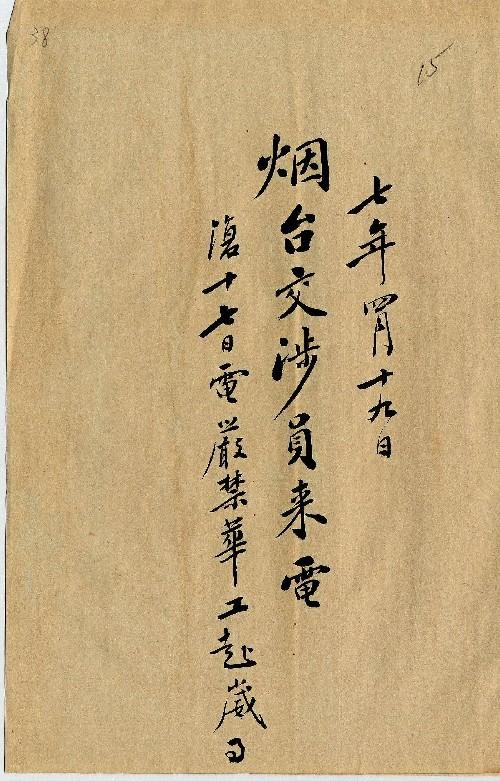 38
15
七年四月十九日
烟台交涉員来電
滄十七日電嚴禁華工赴崴